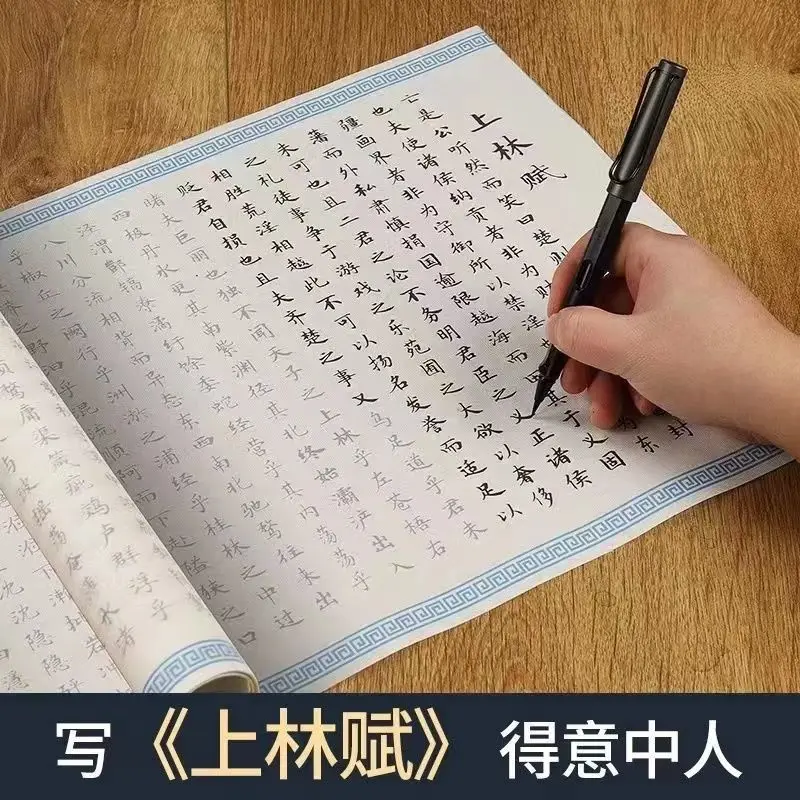 上林赋
亡是公听然而笑曰楚则
也夫使诸侯纳贡者非为财封
疆画界者非为守御所以禁淫为东
藩而外私肃慎捐国逾限越海而田其于义固
未可也且二君之论不务明君臣之义正诸侯
之礼徒事争于游戏之乐苑囿之大欲以奢侈
相胜荒淫相越此不可以扬名发誉而适足以
贬君自损也且夫齐楚之事又乌足道乎君未
睹夫巨丽也独不闻天子之上林乎左苍梧右
西极丹水更其南紫渊径其北终始灞浐出入
泾渭酆镐潦潏纡馀委蛇经营乎其内荡荡乎
八川分流相背而异态东西南北驰骛往来出
乎椒丘之阙行乎洲淤之浦经乎桂林之中过
之野混流顺阿而下赴隘狭之口
写《上林赋》得意中人